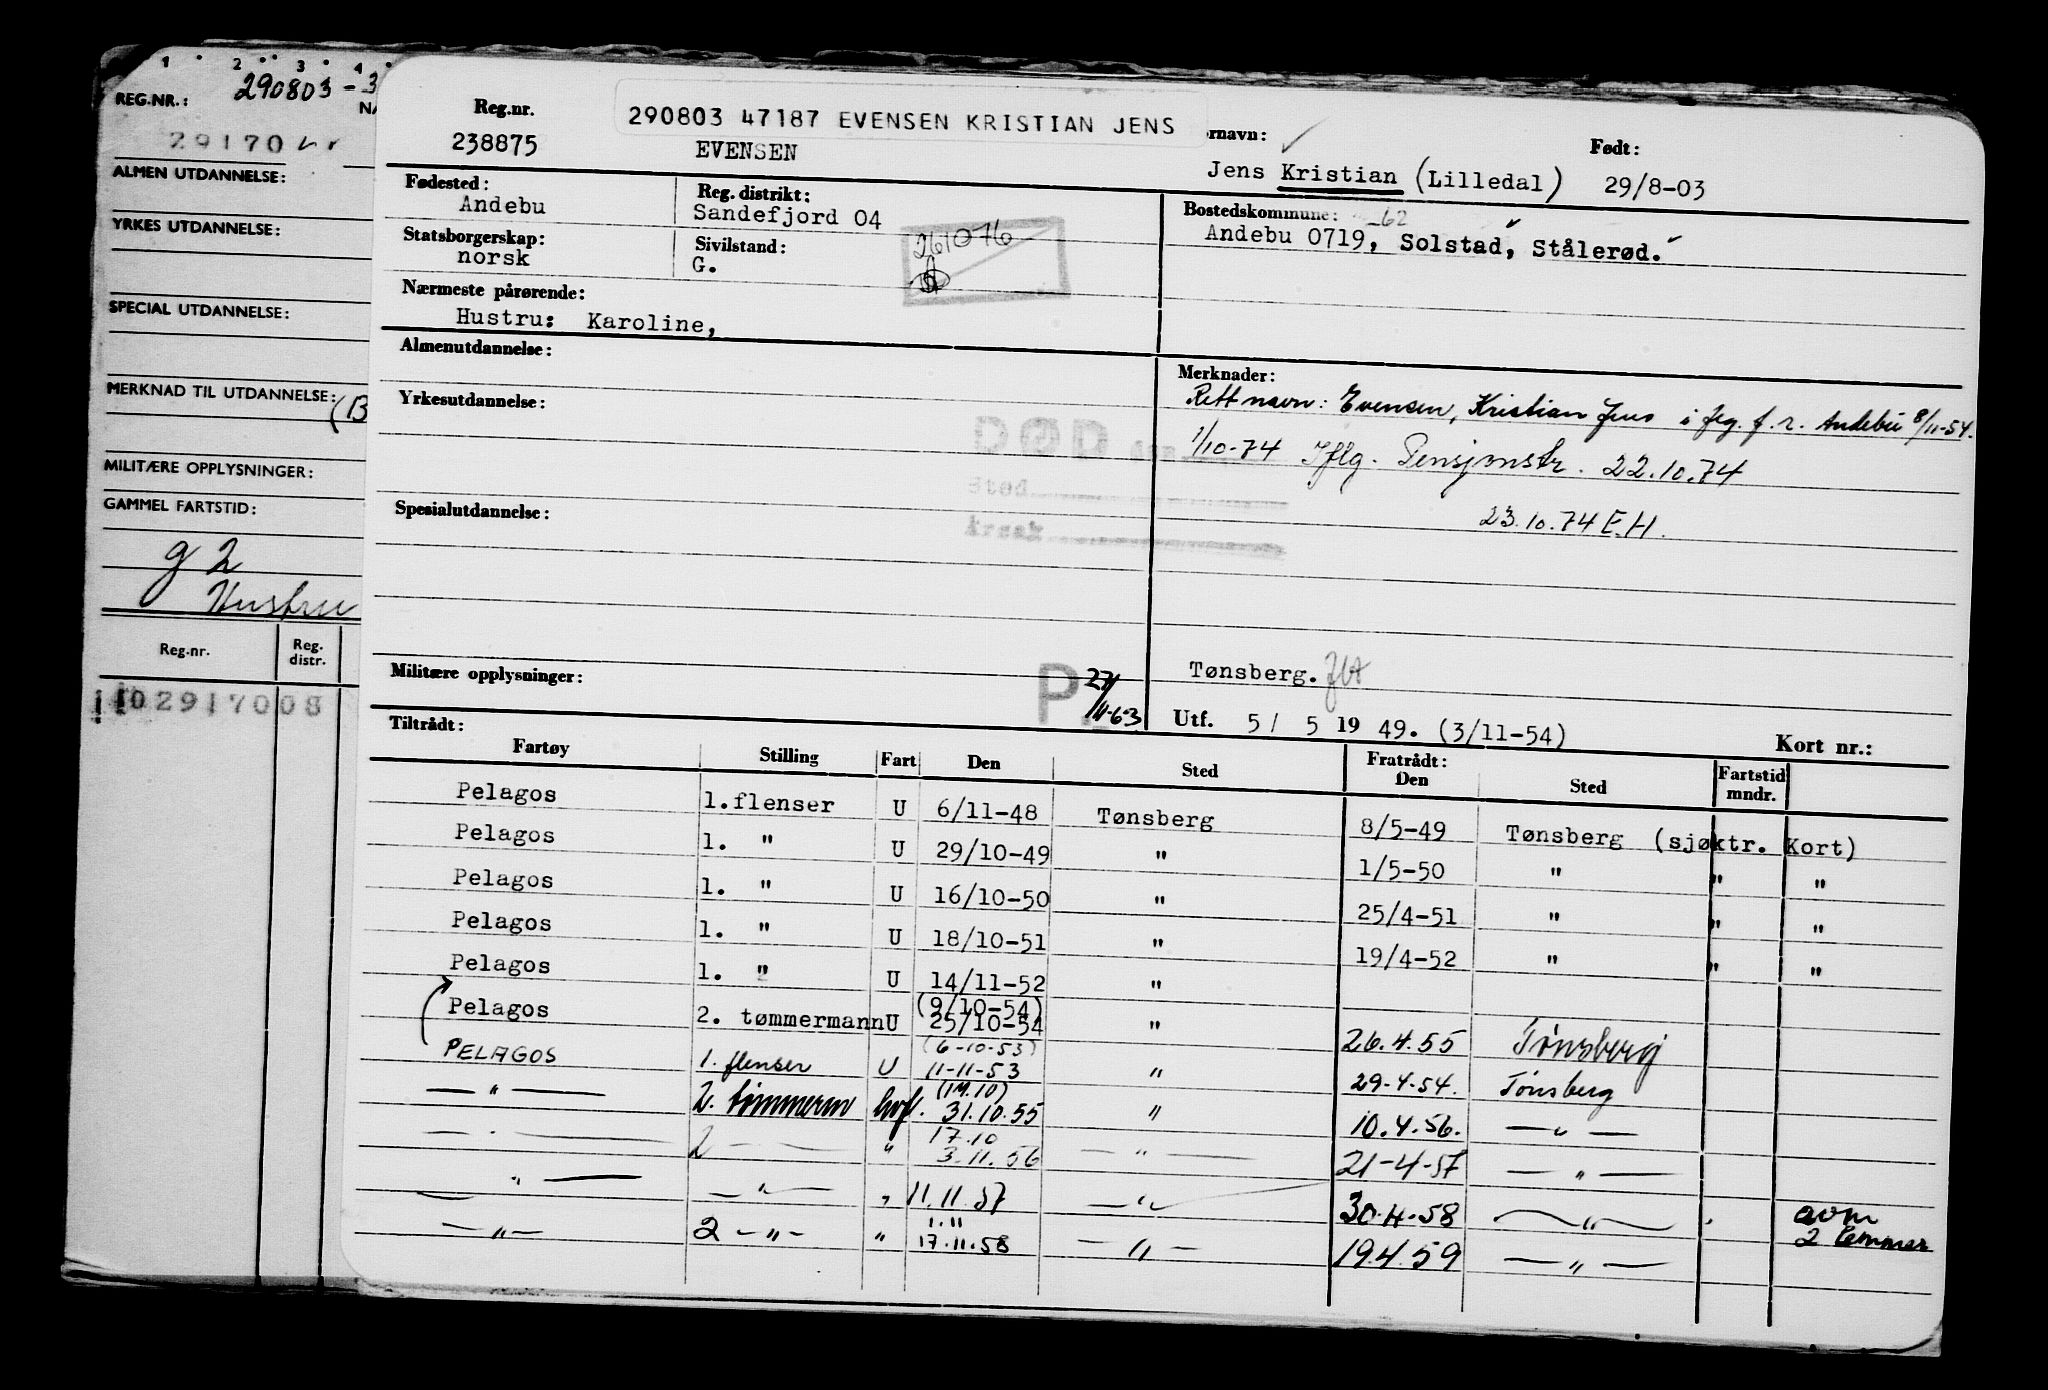 1 2 3 4
REG.NR.: 290803-3
29170
ALMEN UTDANNELSE:
YRKES UTDANNELSE:
SPECIAL UTDANNELSE:
MERKNAD TIL UTDANNELSE: (B
MILITÆRE OPPLYSNINGER:
GAMMEL FARTSTID:
g 2
Hustru
Reg.nr. Reg. distr.
102917008
Reg.nr. 290803 47187 EVENSEN KRISTIAN JENS rnavn: Født:
238875 EVENSEN Jens Kristian (Lilledal) 29/8-03
Fødested: Reg. distrikt: Bostedskommune: 62
Andebu Sandefjord 04 Andebu 0719, Solstad, Stålerød.
Statsborgerskap: Sivilstand: 261076
norsk G.
Nærmeste pårørende:
Hustru: Karoline,
Almenutdannelse: Merknader:
Rett navn: Evensen, Kristian Jens i flg. f.r. Andebu 8/11-54.
Yrkesutdannelse: DØD den
1/10-74 Iflg. Pensjonstr. 22.10.74
Sted
23.10.74 E.H.
Spesialutdannelse: Årsak
Militære opplysninger: P. 27/11-63 Tønsberg.
Utf. 5/ 5 19 49. (3/11-54) Kort nr.:
Tiltrådt: Fratrådt:
Fartøy Stilling Fart Den Sted Den Sted Fartstid mndr.
Pelagos 1.flenser U 6/11-48 Tønsberg 8/5-49 Tønsberg (sjøktr. Kort)
Pelagos 1. " U 29/10-49 " 1/5-50 " " "
Pelagos 1. " U 16/10-50 " 25/4-51 " " "
Pelagos 1. " U 18/10-51 " 19/4-52 " " "
Pelagos 1. " U 14/11-52 "
(9/10-54)
Pelagos 2. tømmermann U 25/10-54 " 26.4.55 Tønsberg
(6-10-53)
PELAGOS 1. flenser U 11-11-53 " 29-4-54. Tønsberg
— " — 2. tømmerm hvf. 31.10.55 " 10.4.56. — " —
17.10
— " — 2 — " 3.11.56 — " — 21-4-57 — " —
— " — — " — " 11.11.57 — " — 30.4.58 — " — avm
2 tømmer
1.11
— " — 2 — " — " 17.11.58 — " — 19.4.59 — " —